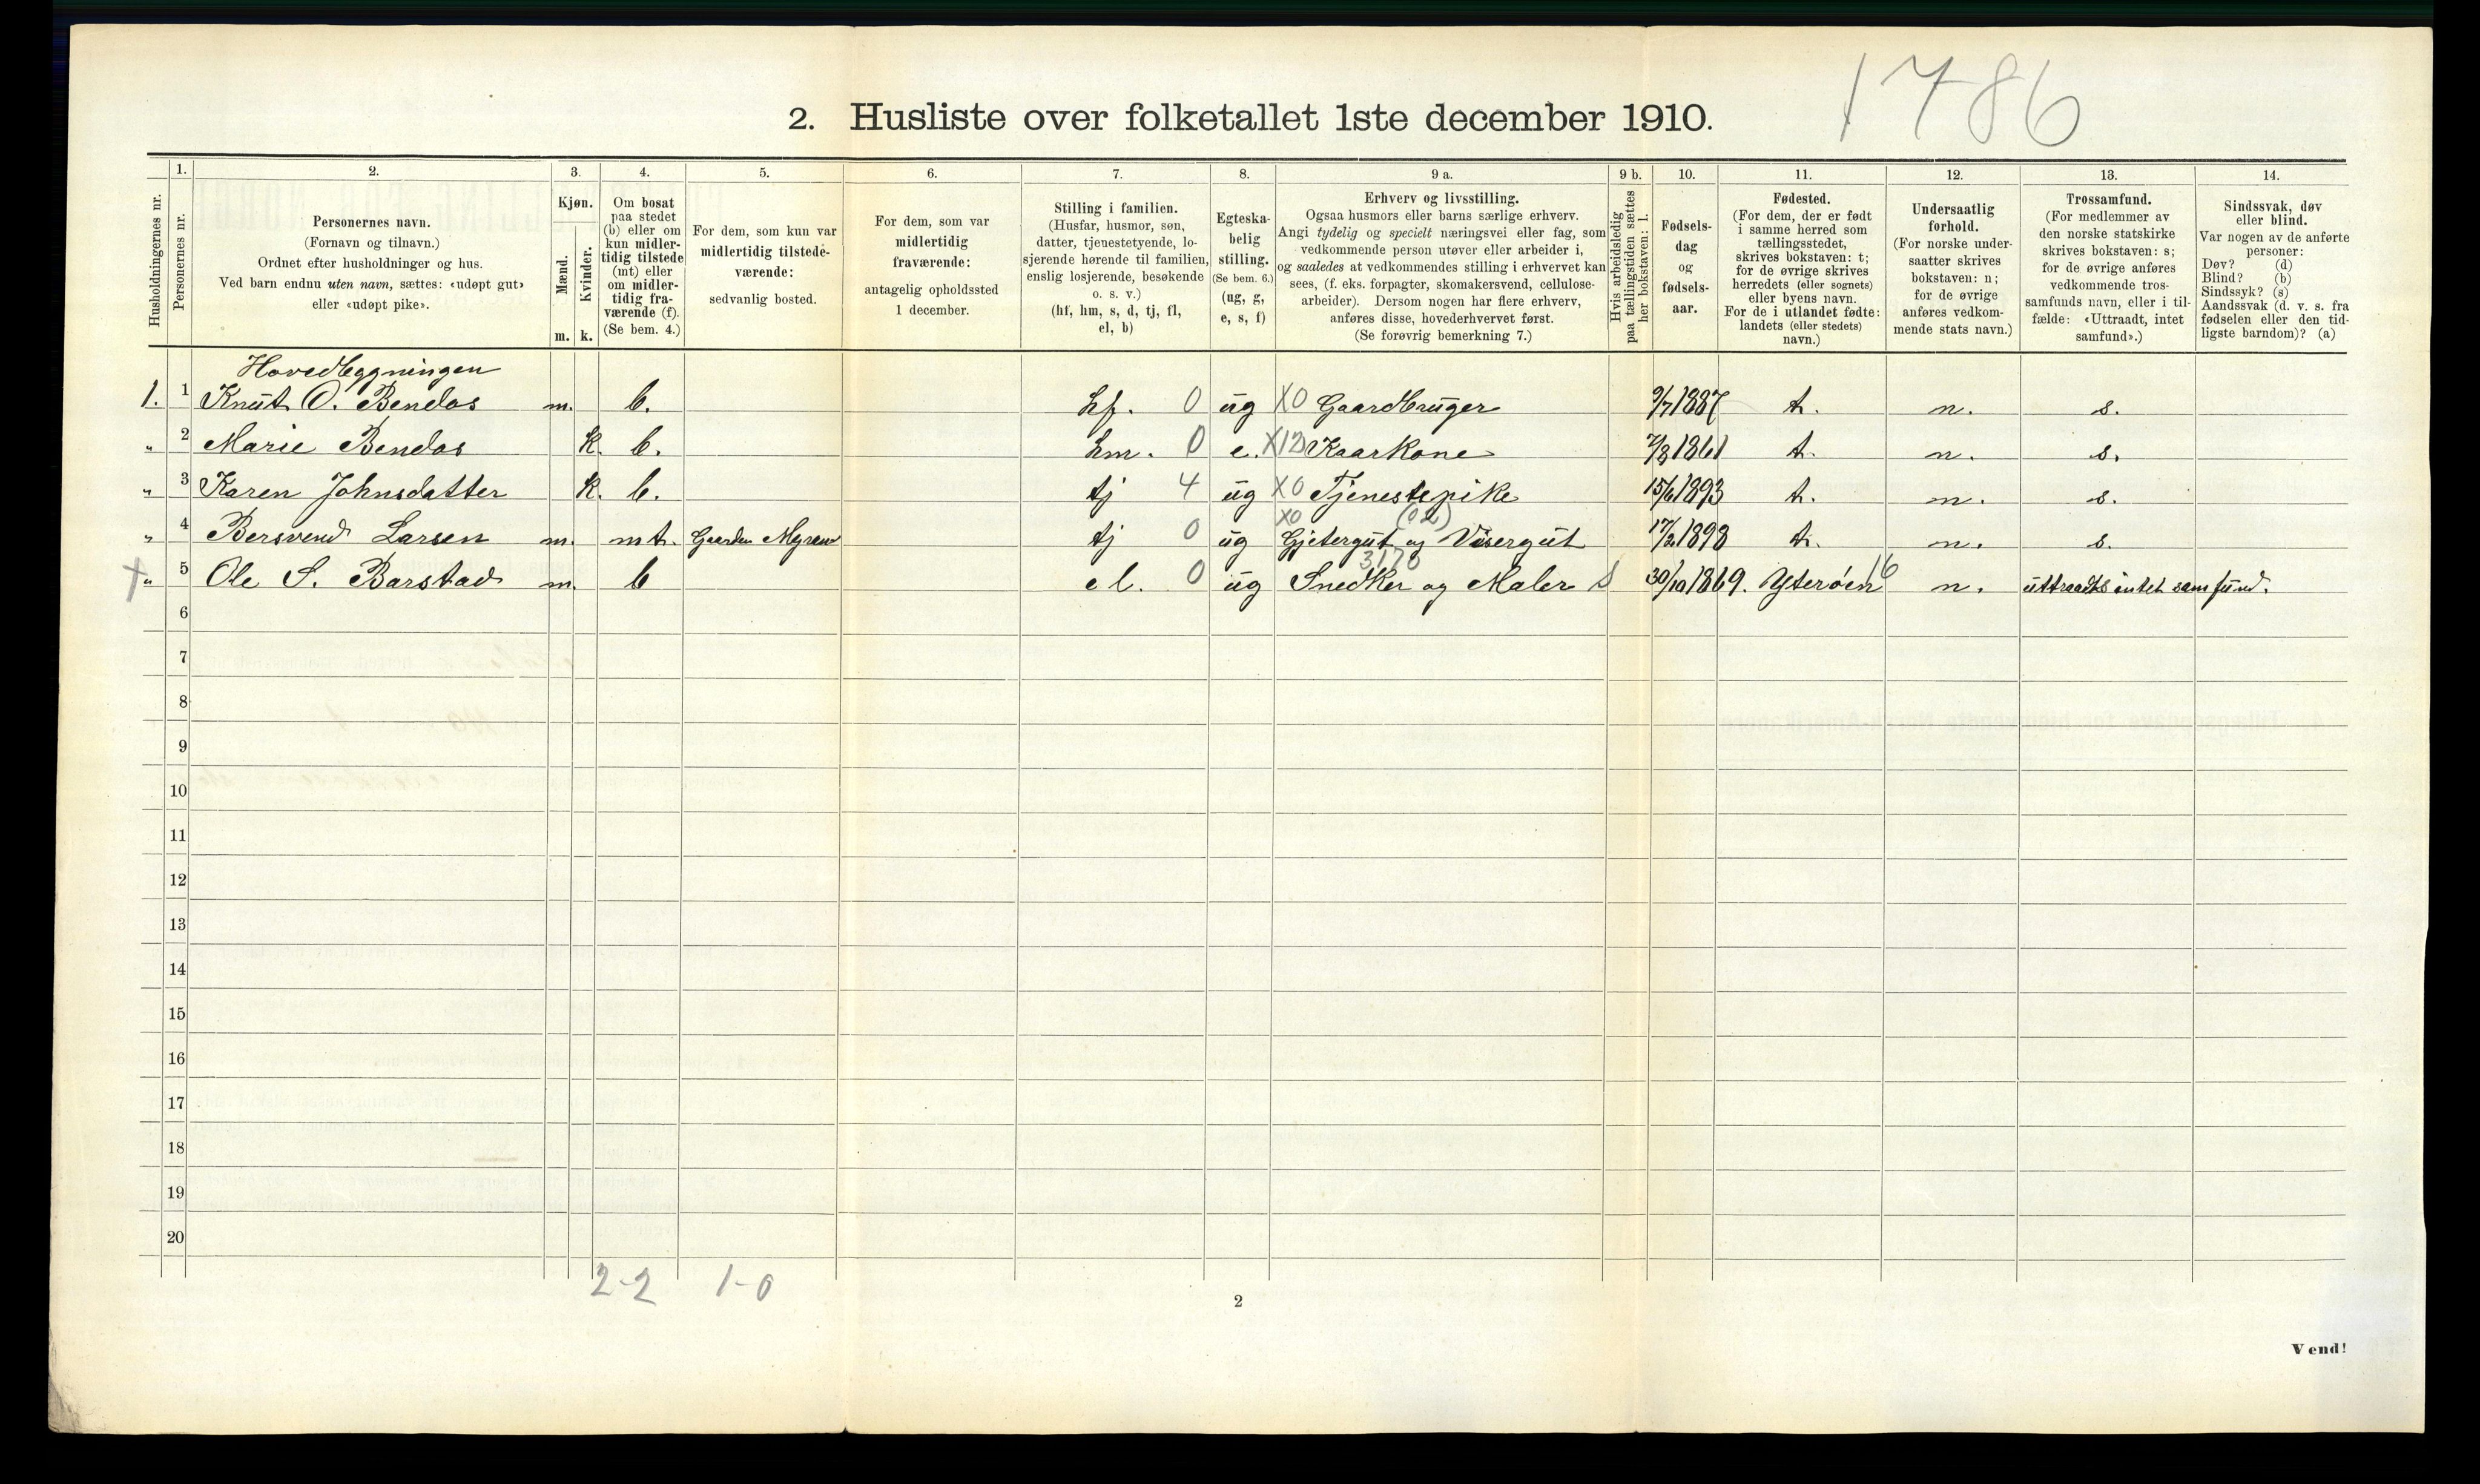 1786
2. Husliste over folketallet 1ste december 1910.
Husholdningernes nr.
1. Personernes nr.
2. Personernes navn.
(Fornavn og tilnavn.)
Ordnet efter husholdninger og hus.
Ved barn endnu uten navn, sættes: «udøpt gut»
eller «udøpt pike».
3. Kjøn.
Mænd. Kvinder.
m. k.
4. Om bosat
paa stedet
(b) eller om
kun midler-
tidig tilstede
(mt) eller
om midler-
tidig fra-
værende (f).
(Se bem. 4.)
5. For dem, som kun var
midlertidig tilstede-
værende:
sedvanlig bosted.
6. For dem, som var
midlertidig
fraværende:
antagelig opholdssted
1 december.
7. Stilling i familien.
(Husfar, husmor, søn,
datter, tjenestetyende, lo-
sjerende hørende til familien,
enslig losjerende, besøkende
o. s. v.)
(hf, hm, s, d, tj, fl,
el, b)
8. Egteska-
belig
stilling.
(Se bem. 6.)
(ug, g,
e, s, f)
9 a. Erhverv og livsstilling.
Ogsaa husmors eller barns særlige erhverv.
Angi tydelig og specielt næringsvei eller fag, som
vedkommende person utøver eller arbeider i,
og saaledes at vedkommendes stilling i erhvervet kan
sees, (f. eks. forpagter, skomakersvend, cellulose-
arbeider). Dersom nogen har flere erhverv,
anføres disse, hovederhvervet først.
(Se forøvrig bemerkning 7.)
9 b. Hvis arbeidsledig
paa tællingstiden sættes
her bokstaven: l.
10. Fødsels-
dag
og
fødsels-
aar.
11. Fødested.
(For dem, der er født
i samme herred som
tællingsstedet,
skrives bokstaven: t;
for de øvrige skrives
herredets (eller sognets)
eller byens navn.
For de i utlandet fødte:
landets (eller stedets)
navn.)
12. Undersaatlig
forhold.
(For norske under-
saatter skrives
bokstaven: n;
for de øvrige
anføres vedkom-
mende stats navn.)
13. Trossamfund.
(For medlemmer av
den norske statskirke
skrives bokstaven: s;
for de øvrige anføres
vedkommende tros-
samfunds navn, eller i til-
fælde: «Uttraadt, intet
samfund».)
14. Sindssvak, døv
eller blind.
Var nogen av de anførte
personer:
Døv? (d)
Blind? (b)
Sindssyk? (s)
Aandssvak (d. v. s. fra
fødselen eller den tid-
ligste barndom)? (a)
Hovedbygningen
1. 1 Knut O. Bendos m. b. hf. 0 ug X0 Gaardbruger 9/7 1887 t. n. s.
" 2 Marie Bendos k. b. hm. 0 e. X12 Kaarkone 7/8 1861 t. n. s.
" 3 Karen Johnsdatter k. b. tj 4 ug X0 Tjenestepike 15/6 1893 t. n. s.
" 4 Bersvend Larsen m. mt. Gaarden Myran tj 0 ug X0 Gjetergut og Visergut 17/2 1898 t. n. s.
3170
" 5 Ole S. Barstad m. b el. 0 ug Snedker og Maler S 30/10 1869. Ytterøen 16 n. uttraadt intet samfund.
6
7
8
9
10
11
12
13
14
15
16
17
18
19
20
2-2 1-0
2
Vend!